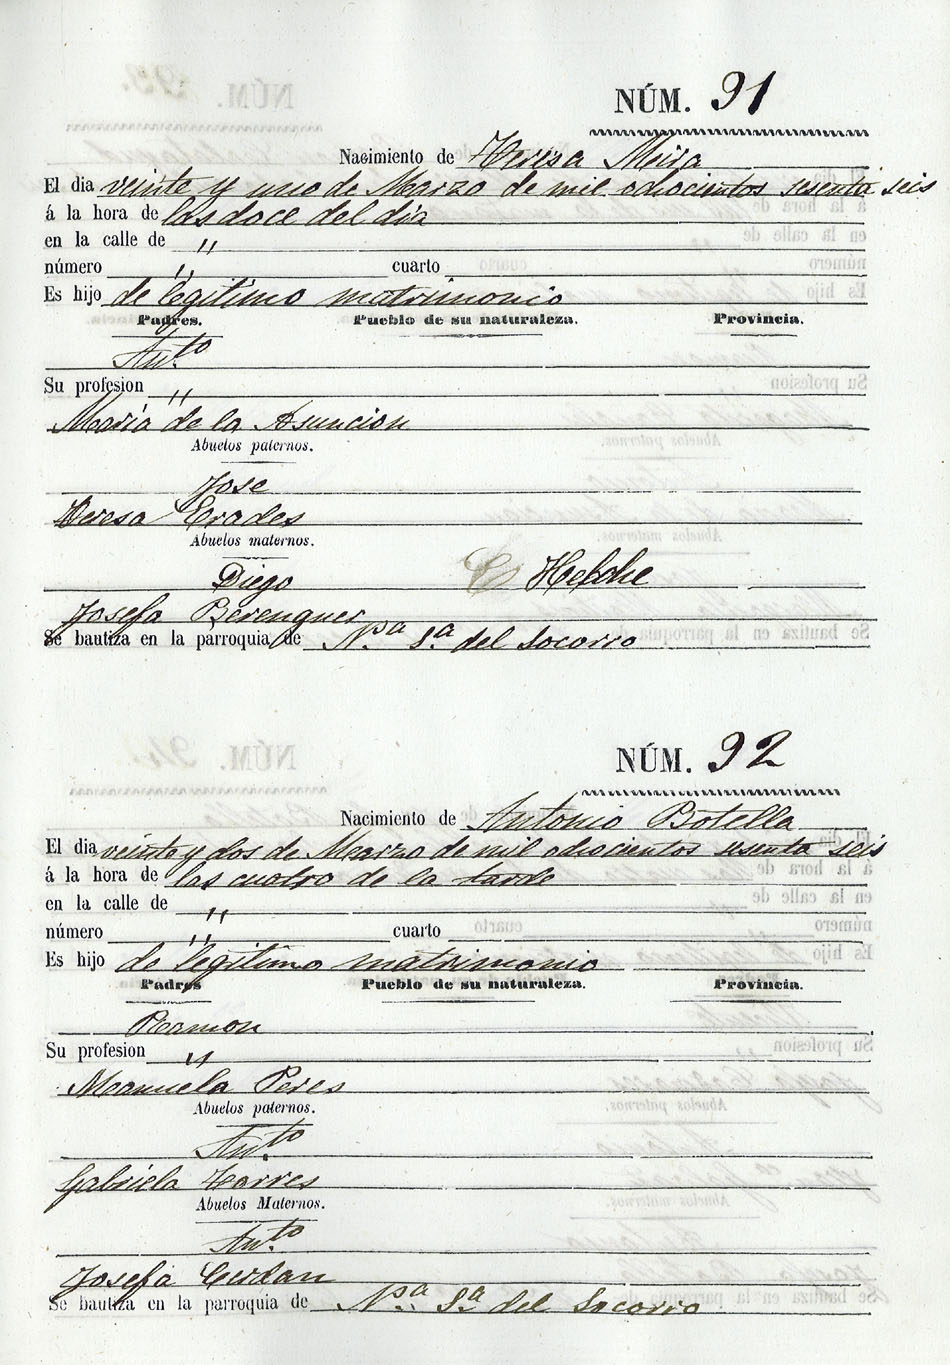 NÚM. 91
Nacimiento de Teresa Mira
El dia veinte y uno de Marzo de mil ochocientos sesenta seis
á la hora de las doce del dia
en la calle de "
número " cuarto
Es hijo de legitimo matrimonio
Padres. Pueblo de su naturaleza. Provincia.
Ant.to
Su profesion "
Maria de la Asuncion
Abuelos paternos.
Jose
Teresa Erades
Abuelos maternos.
Diego
Josefa Berenguer
Se bautiza en la parroquia de N.a S.a del Socorro
NÚM. 92
Nacimiento de Antonio Botella
El dia veinte y dos de Marzo de mil ochocientos sesenta seis
á la hora de las cuatro de la tarde
en la calle de "
número " cuarto
Es hijo de legitimo matrimonio
Padres Pueblo de su naturaleza. Provincia.
Ramon
Su profesion "
Manuela Peres
Abuelos paternos.
Ant.to
Gabriela Torres
Abuelos Maternos.
Ant.to
Josefa Cerdan
Se bautiza en la parroquia de N.a S.a del Socorro